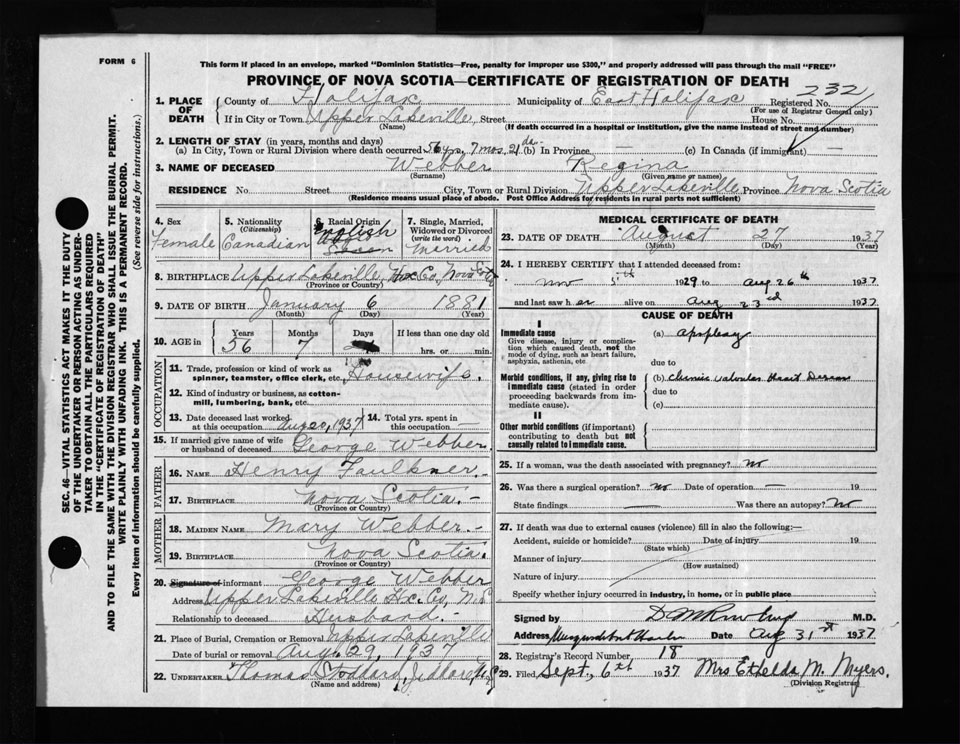 FORM 6
This form if placed in an envelope, marked "Dominion Statistics—Free, penalty for improper use $300," and properly addressed will pass through the mail "FREE"
PROVINCE OF NOVA SCOTIA—CERTIFICATE OF REGISTRATION OF DEATH
232
1. PLACE OF DEATH County of Halifax Municipality of East Halifax Registered No.
(For use of Registrar General only)
If in City or Town Upper Lakeville Street House No.
(Name) (If death occurred in a hospital or institution, give the name instead of street and number)
2. LENGTH OF STAY (in years, months and days)
(a) In City, Town or Rural Division where death occurred 56 yrs, 7 mos. 21 ds. (b) In Province — (c) In Canada (if immigrant) —
3. NAME OF DECEASED Webber Regina
(Surname) (Given name or names)
RESIDENCE No. Street City, Town or Rural Division Upper Lakeville Province Nova Scotia
(Residence means usual place of abode. Post Office Address for residents in rural parts not sufficient)
4. Sex Female
5. Nationality (Citizenship) Canadian
6. Racial Origin English
7. Single, Married, Widowed or Divorced (write the word) Married
8. BIRTHPLACE Upper Lakeville, Hx. Co., Nova Scotia
(Province or Country)
9. DATE OF BIRTH January 6 1881
(Month) (Day) (Year)
10. AGE in Years 56 Months 7 Days If less than one day old hrs. or min.
OCCUPATION
11. Trade, profession or kind of work as spinner, teamster, office clerk, etc. Housewife.
12. Kind of industry or business, as cotton-mill, lumbering, bank, etc.
13. Date deceased last worked at this occupation Aug 20, 1937 14. Total yrs. spent in this occupation —
15. If married give name of wife or husband of deceased George Webber
FATHER
16. NAME Henry Faulkner
17. BIRTHPLACE Nova Scotia.
(Province or Country)
MOTHER
18. MAIDEN NAME Mary Webber
19. BIRTHPLACE Nova Scotia.
(Province or Country)
20. Signature of informant George Webber
Address Upper Lakeville Hx. Co, N.S
Relationship to deceased Husband
21. Place of Burial, Cremation or Removal Upper Lakeville
Date of burial or removal Aug. 29, 1937
22. UNDERTAKER Thomas Stoddard, Jeddore, N.S
(Name and address)
MEDICAL CERTIFICATE OF DEATH
23. DATE OF DEATH August 27 1937
(Month) (Day) (Year)
24. I HEREBY CERTIFY that I attended deceased from:
Nov 5th 1929 to Aug 26th 1937
and last saw her alive on Aug 23rd 1937
CAUSE OF DEATH
I
Immediate cause
Give disease, injury or complication which caused death, not the mode of dying, such as heart failure, asphyxia, asthenia, etc
(a) Apoplexy
due to
Morbid conditions, if any, giving rise to immediate cause (stated in order proceeding backwards from immediate cause).
(b) Chronic Valvular Heart Disease
due to
(c)
II
Other morbid conditions (if important) contributing to death but not causally related to immediate cause.
25. If a woman, was the death associated with pregnancy? No
26. Was there a surgical operation? No Date of operation — 19
State findings — Was there an autopsy? No
27. If death was due to external causes (violence) fill in also the following:—
Accident, suicide or homicide? Date of injury 19
(State which)
Manner of injury
(How sustained)
Nature of injury
Specify whether injury occurred in industry, in home, or in public place
Signed by M.D.
Address Musquodoboit Harbor Date Aug 31st 1937
28. Registrar's Record Number 18
29. Filed Sept. 6th 1937 Mrs Ethelda M. Myers.
(Division Registrar)
SEC. 46—VITAL STATISTICS ACT MAKES IT THE DUTY
OF THE UNDERTAKER OR PERSON ACTING AS UNDER-
TAKER TO OBTAIN ALL THE PARTICULARS REQUIRED
IN THE "CERTIFICATE OF REGISTRATION OF DEATH"
AND TO FILE THE SAME WITH THE DIVISION REGISTRAR WHO SHALL ISSUE THE BURIAL PERMIT.
WRITE PLAINLY WITH UNFADING INK. THIS IS A PERMANENT RECORD.
Every item of information should be carefully supplied. (See reverse side for instructions.)